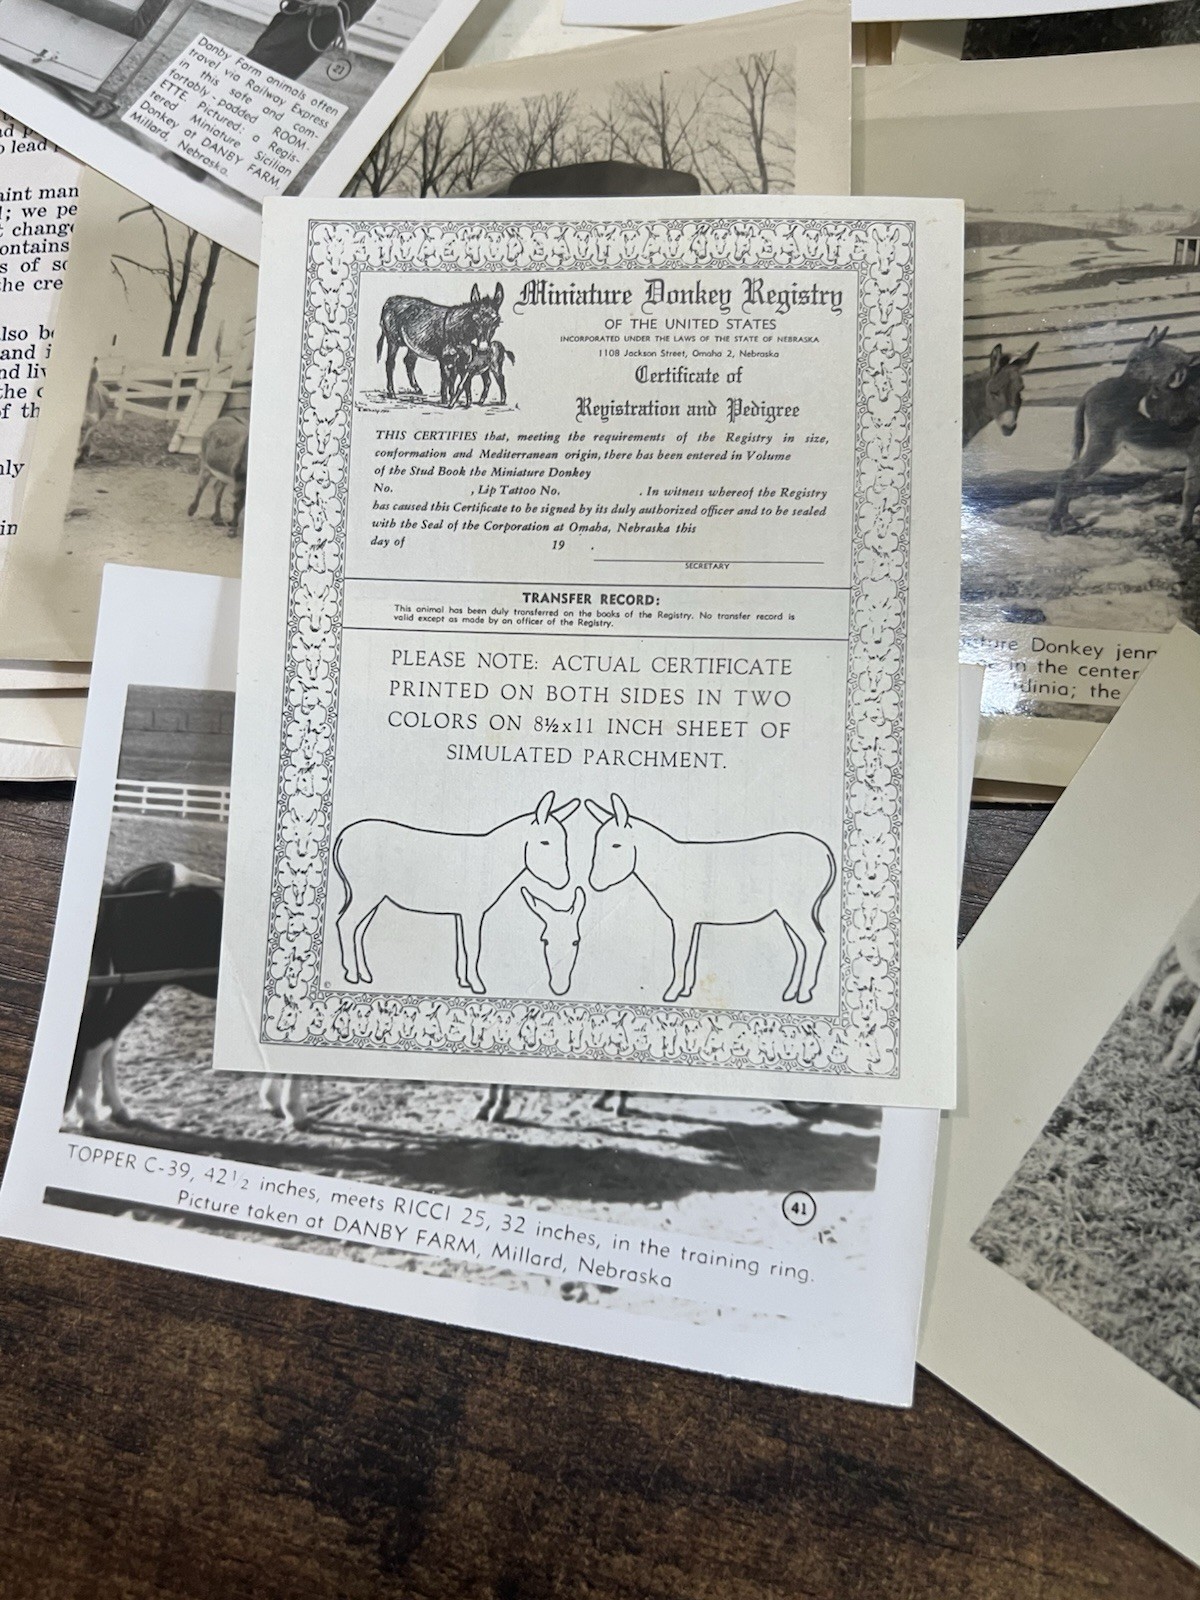 Danby Farm animals often
travel via Railway Express
in this safe and com-
fortably-padded ROOM-
ETTE. Pictured: a Regis-
tered Miniature Sicilian
Donkey at DANBY FARM,
Millard, Nebraska.
23
lead
aint man
; we pe
change
ontains
s of so
the cre
also be
and i
nd liv
the
of th
nly
in
Miniature Donkey Registry
OF THE UNITED STATES
INCORPORATED UNDER THE LAWS OF THE STATE OF NEBRASKA
1108 Jackson Street, Omaha 2, Nebraska
Certificate of
Registration and Pedigree
THIS CERTIFIES that, meeting the requirements of the Registry in size,
conformation and Mediterranean origin, there has been entered in Volume
of the Stud Book the Miniature Donkey
No. , Lip Tattoo No. . In witness whereof the Registry
has caused this Certificate to be signed by its duly authorized officer and to be sealed
with the Seal of the Corporation at Omaha, Nebraska this
day of 19 .
SECRETARY
TRANSFER RECORD:
This animal has been duly transferred on the books of the Registry. No transfer record is
valid except as made by an officer of the Registry.
PLEASE NOTE: ACTUAL CERTIFICATE
PRINTED ON BOTH SIDES IN TWO
COLORS ON 8½x11 INCH SHEET OF
SIMULATED PARCHMENT.
©
ture Donkey jenn
in the center
dinia; the
TOPPER C-39, 42½ inches, meets RICCI 25, 32 inches, in the training ring.
Picture taken at DANBY FARM, Millard, Nebraska
41